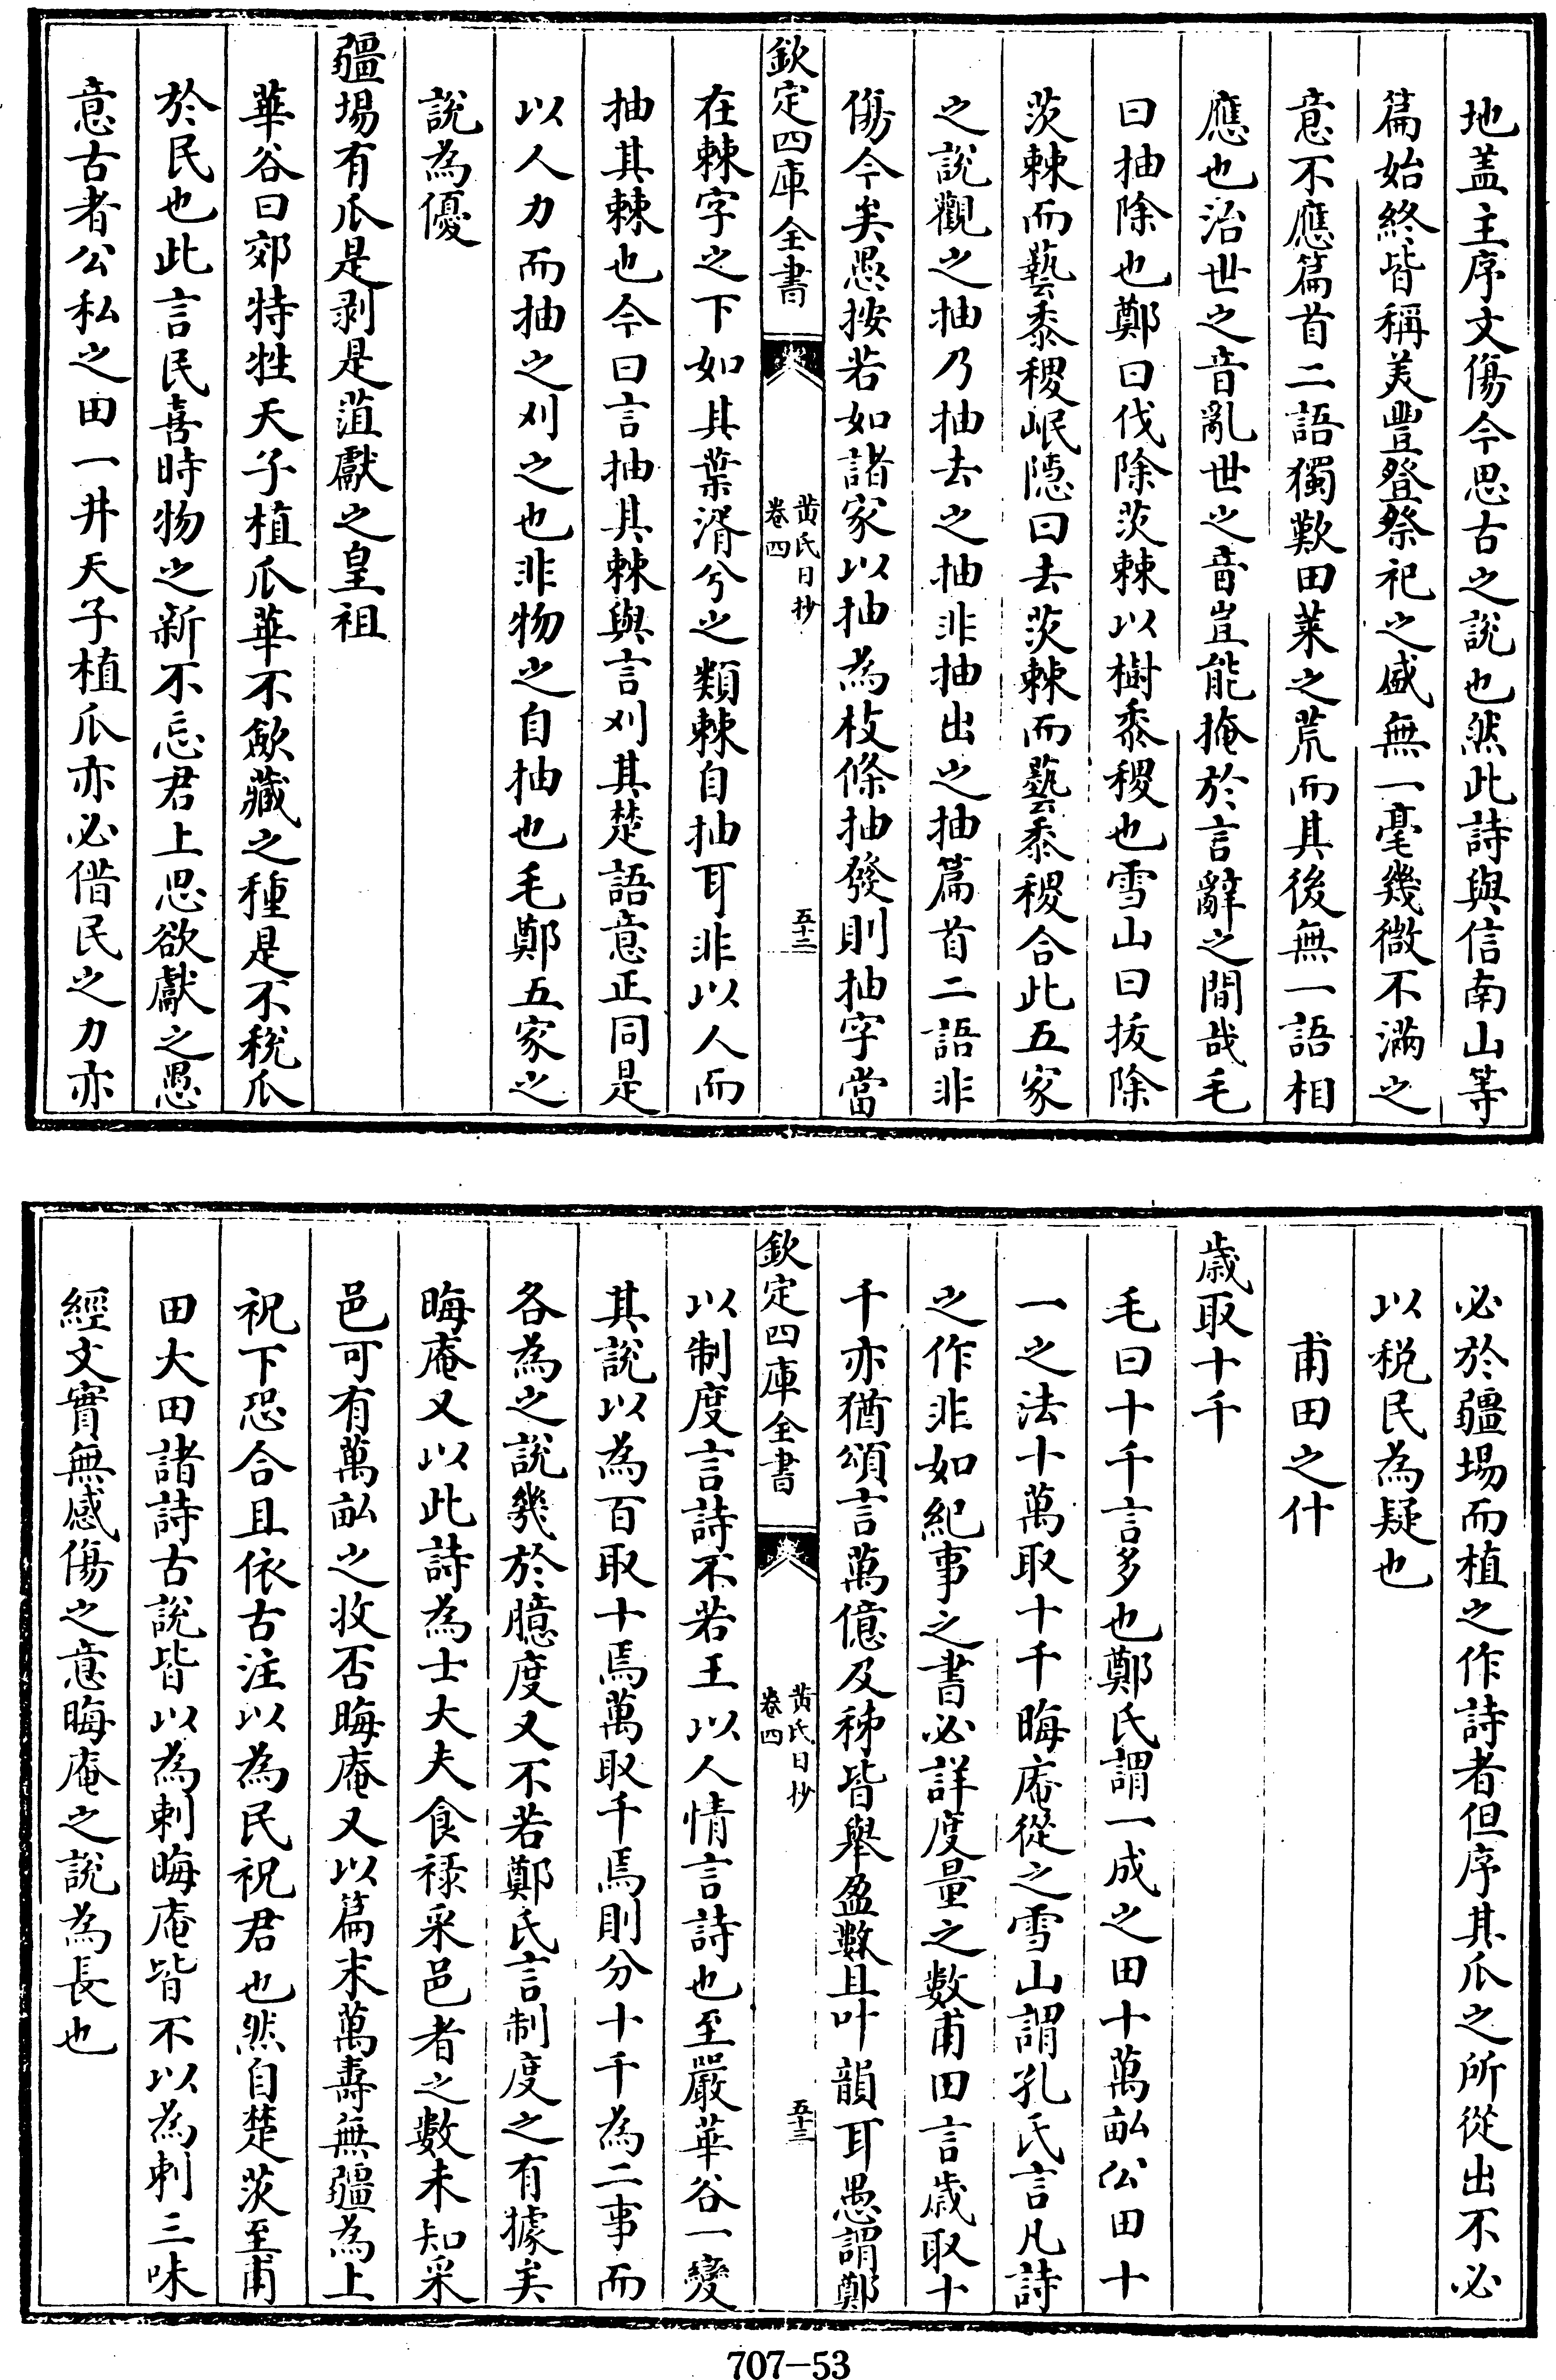 地盖主序文傷今思古之說也然此詩與信南山等
篇始終皆稱美豐登祭祀之盛無一毫幾微不滿之
意不應篇首二語獨歎田萊之荒而其後無一語相
應也治世之音亂世之音豈能掩於言辭之間哉毛
曰抽除也鄭曰伐除茨棘以樹黍稷也雪山曰拔除
茨棘而藝黍稷岷隱曰去茨棘而藝黍稷合此五家
之說觀之抽乃抽去之抽非抽出之抽篇首二語非
傷今矣愚按若如諸家以抽為枝條抽發則抽字當
欽定四庫全書
黄氏日抄
卷四
五十二
在棘字之下如其葉湑兮之類棘自抽耳非以人而
抽其棘也今曰言抽其棘與言刈其楚語意正同是
以人力而抽之刈之也非物之自抽也毛鄭五家之
說為優
疆場有瓜是剥是菹獻之皇祖
華谷曰郊特牲天子植瓜華不歛藏之種是不稅瓜
於民也此言民喜時物之新不忘君上思欲獻之愚
意古者公私之田一井天子植瓜亦必借民之力亦
必於疆場而植之作詩者但序其瓜之所從出不必
以稅民為疑也
甫田之什
歳取十千
毛曰十千言多也鄭氏謂一成之田十萬畝公田十
一之法十萬取十千晦庵從之雪山謂孔氏言凡詩
之作非如紀事之書必詳度量之數甫田言歳取十
千亦猶頌言萬億及秭皆舉盈數且叶韻耳愚謂鄭
欽定四庫全書
黄氏日抄
卷四
五十三
以制度言詩不若王以人情言詩也至嚴華谷一變
其說以為百取十焉萬取千焉則分十千為二事而
各為之說幾於臆度又不若鄭氏言制度之有據矣
晦庵又以此詩為士大夫食祿采邑者之數未知采
邑可有萬畝之收否晦庵又以篇末萬壽無疆為上
祝下恐合且依古注以為民祝君也然自楚茨至甫
田大田諸詩古說皆以為刺晦庵皆不以為刺三味
經文實無感傷之意晦庵之說為長也
707-53